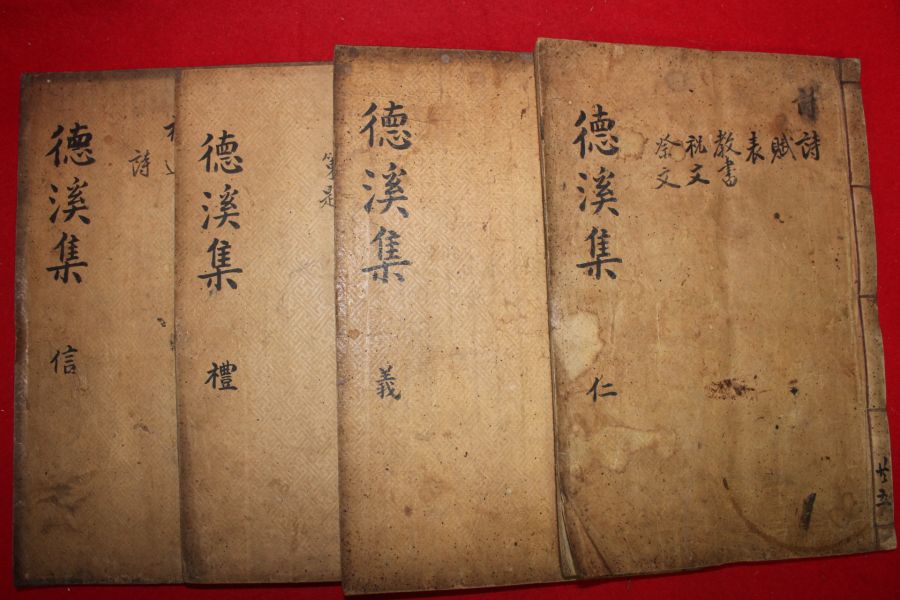 共五
詩
詩
賦
表
教書
祝文
祭文
德溪集 仁
德溪集 義
德溪集 禮
詩
德溪集 信